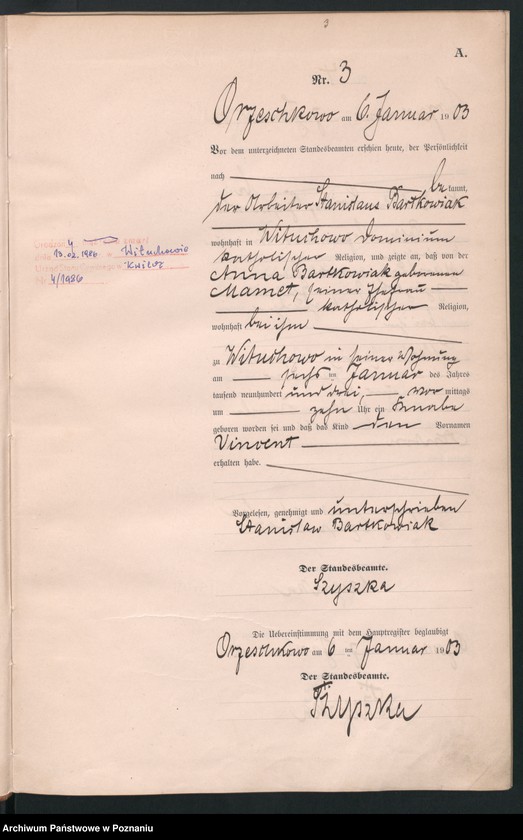 3
A.
Nr. 3
Orzeschkowo am 6. Januar 1903
Vor dem unterzeichneten Standesbeamten erschien heute, der Persönlichkeit
nach be kannt,
der Arbeiter Stanislaus Bartkowiak
wohnhaft in Wituchowo Dominium
katholischer Religion, und zeigte an, daß von der
Anna Bartkowiak geborenen
Mamet, seiner Ehefrau
katholischer Religion,
wohnhaft bei ihm
zu Wituchowo in seiner Wohnung
am sechs ten Januar des Jahres
tausend neunhundert und drei, vor mittags
um zehn Uhr ein Knabe
geboren worden sei und daß das Kind den Vornamen
Vincent
erhalten habe.
13.02.1986 Wituchowie
Kwilcz
4/1986
Vorgelesen, genehmigt und unterschrieben
Stanisław Bartkowiak
Der Standesbeamte.
Szyszka
Die Uebereinstimmung mit dem Hauptregister beglaubigt
Orzeschkowo am 6 ten Januar 1903
Der Standesbeamte.
Szyszka
Archiwum Państwowe w Poznaniu